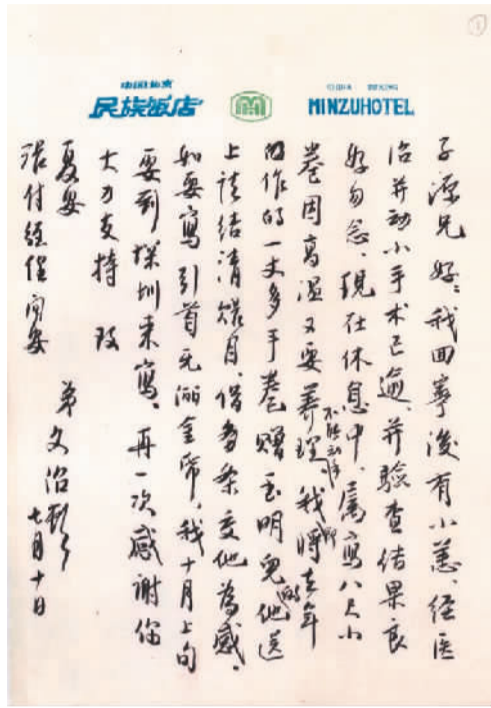 ①
中国北京 CHINA BEIJING
民族饭店 MINZUHOTEL
子源兄 好：我回寧後有小恙、经医
治并动小手术已逾、并验查结果良
好勿念、现在休息中、属寫八尺小
卷因高温又要养理不能动手我即将去年
的作的一丈多手卷赠玉明兄向他送
上请结清账目、借多条交他为感、
如要寫引首无洒金纸、我十月上旬
要到深圳来寫、再一次感谢你
大力支持 致
夏安
张付经理问安
弟文治
七月十日